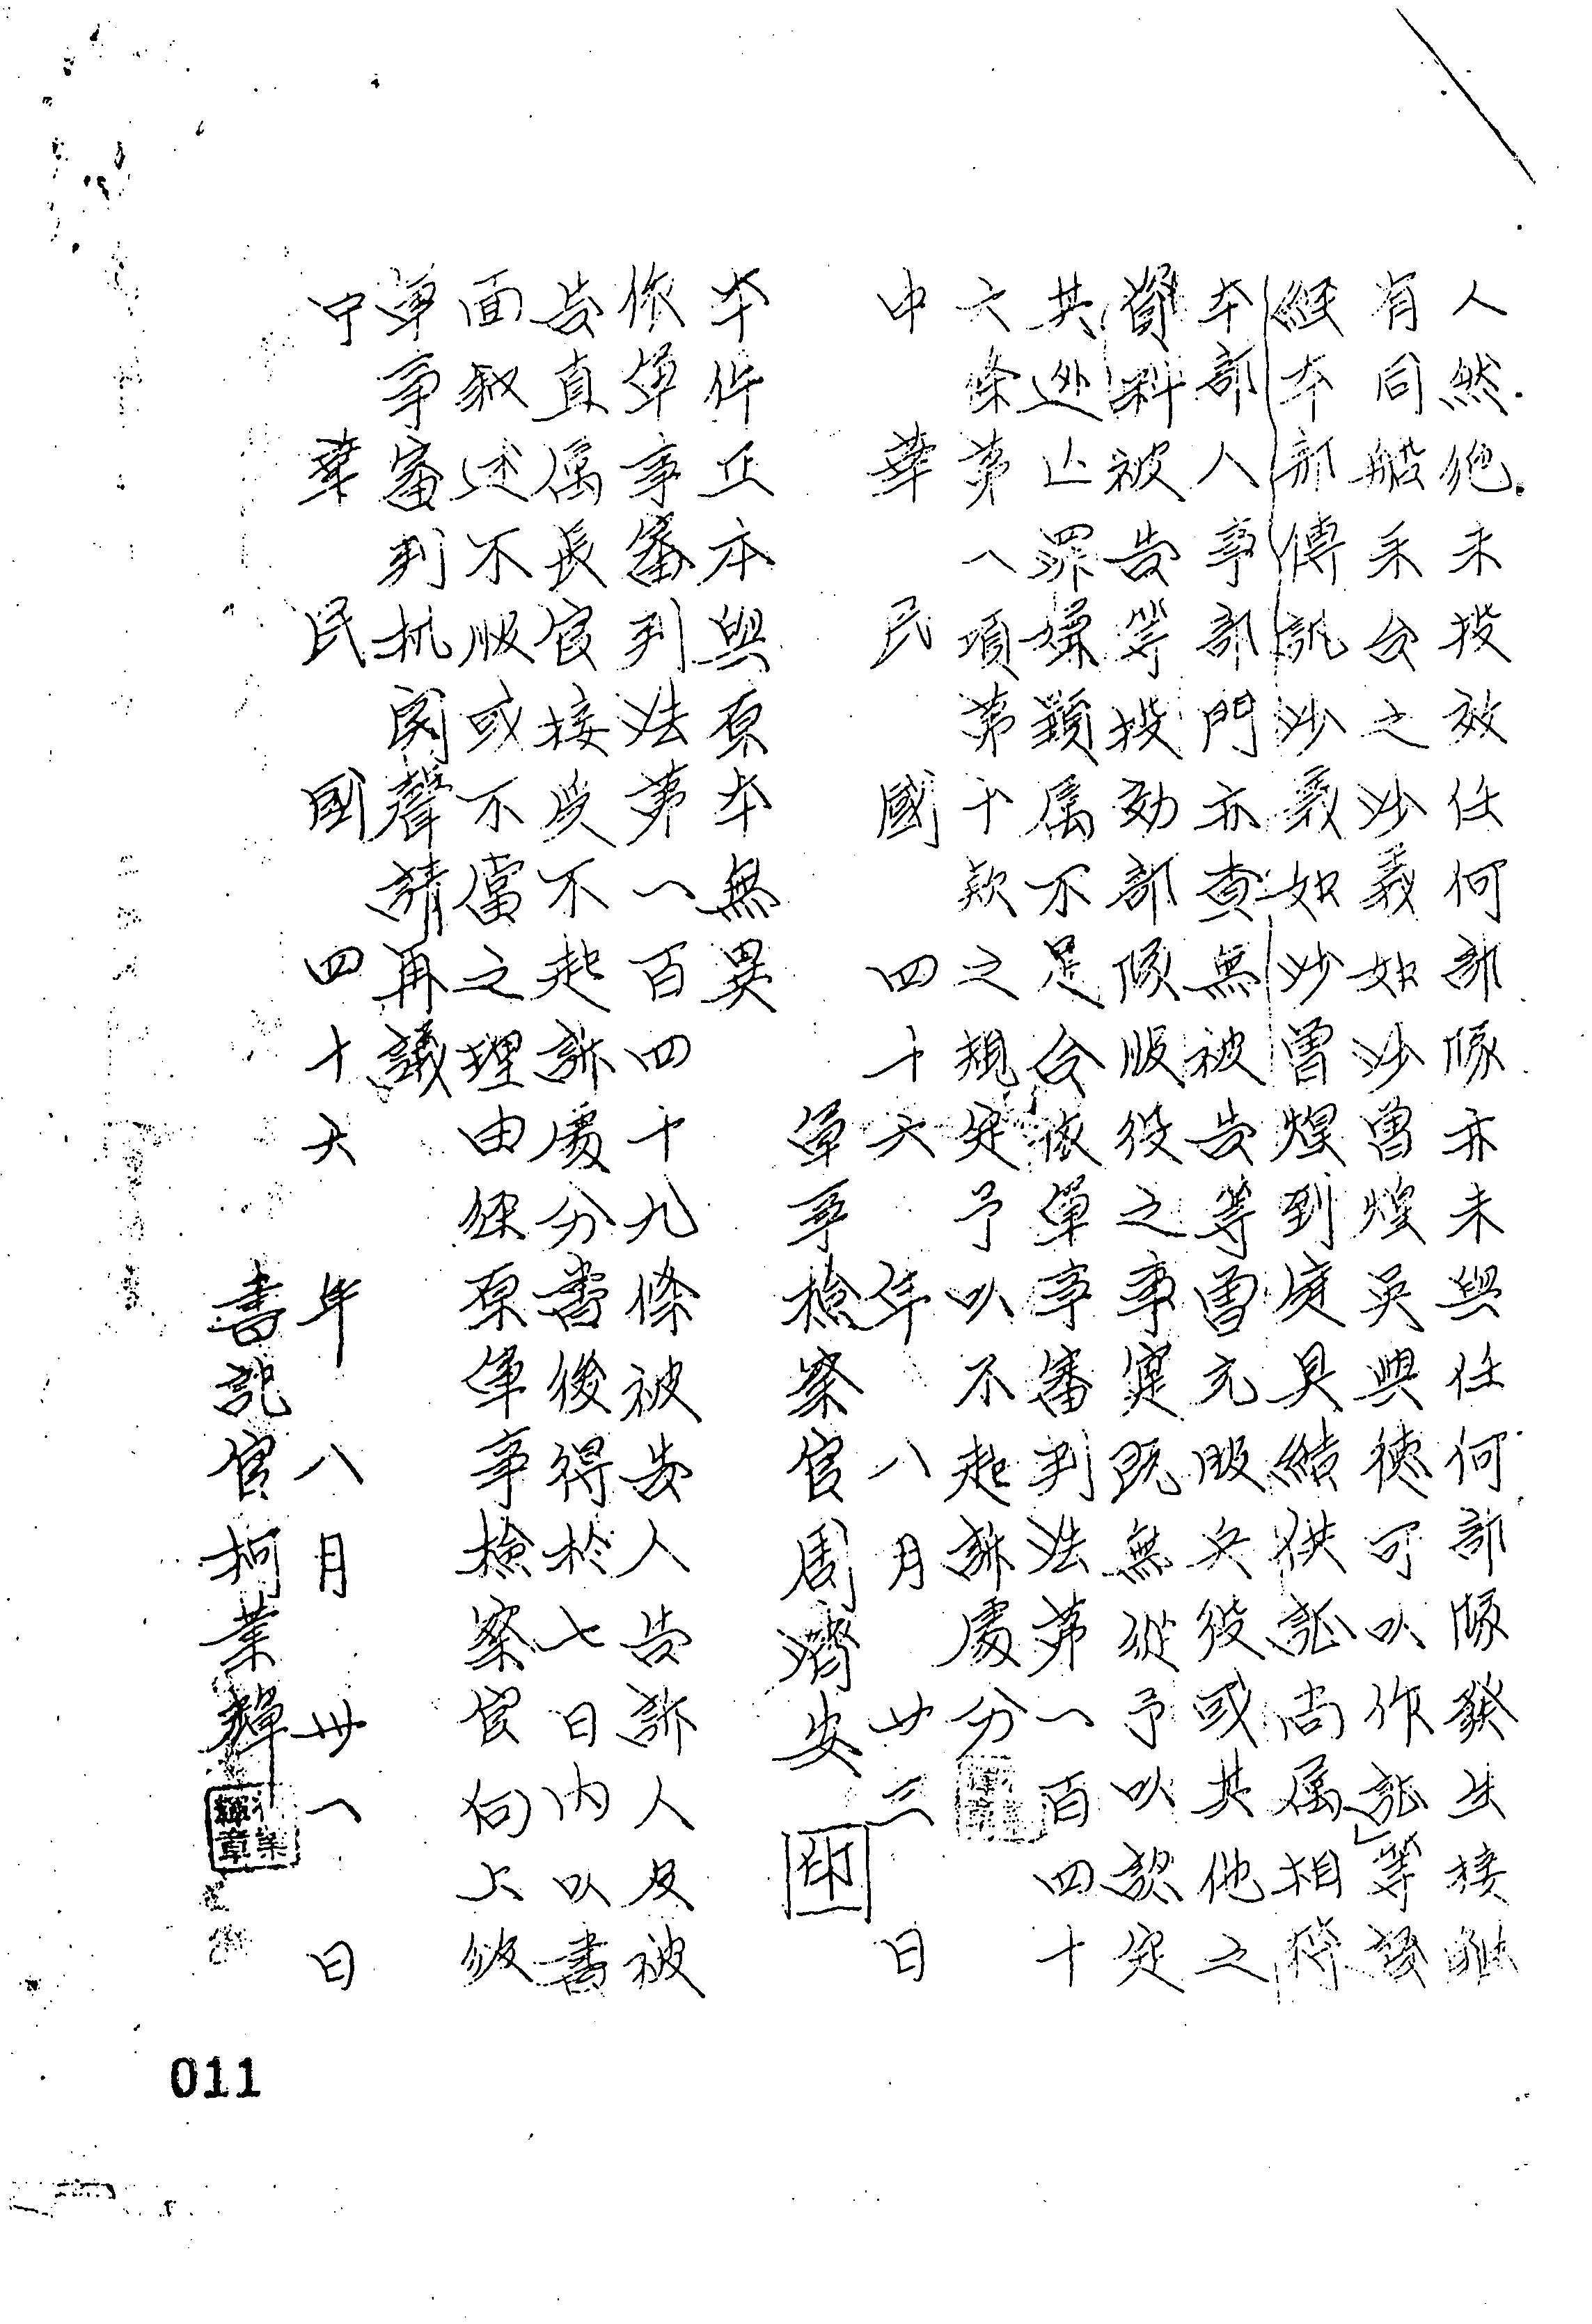 人然絶未投效任何部隊亦未與任何部隊發生接
有同船來台之妙義如妙曾煌吳與德可以作証」等語
經本部傳訊妙義如妙曾煌到庭具結供証尚属相符
本部人事部門亦查無被告等曾充服兵役或其他之
資料被告等投効部隊服役之事寔既無從予以認定
共逃亡罪嫌顯属不足合依軍事審判法第一百四十
六條第一項第十款之規定予以不起訴處分
中華民國四十六年八月廿三日
軍事檢察官周濟安 印
本件正本與原本無異
依軍事審判法第一百四十九條被告人告訴人及被
告直属長官接受不起訴處分書後得於七日内以書
面敘述不服或不當之理由經原軍事檢察官向上級
軍事審判机関聲請再議
中華民國四十六年八月卅一日
書記官柯業輝
011